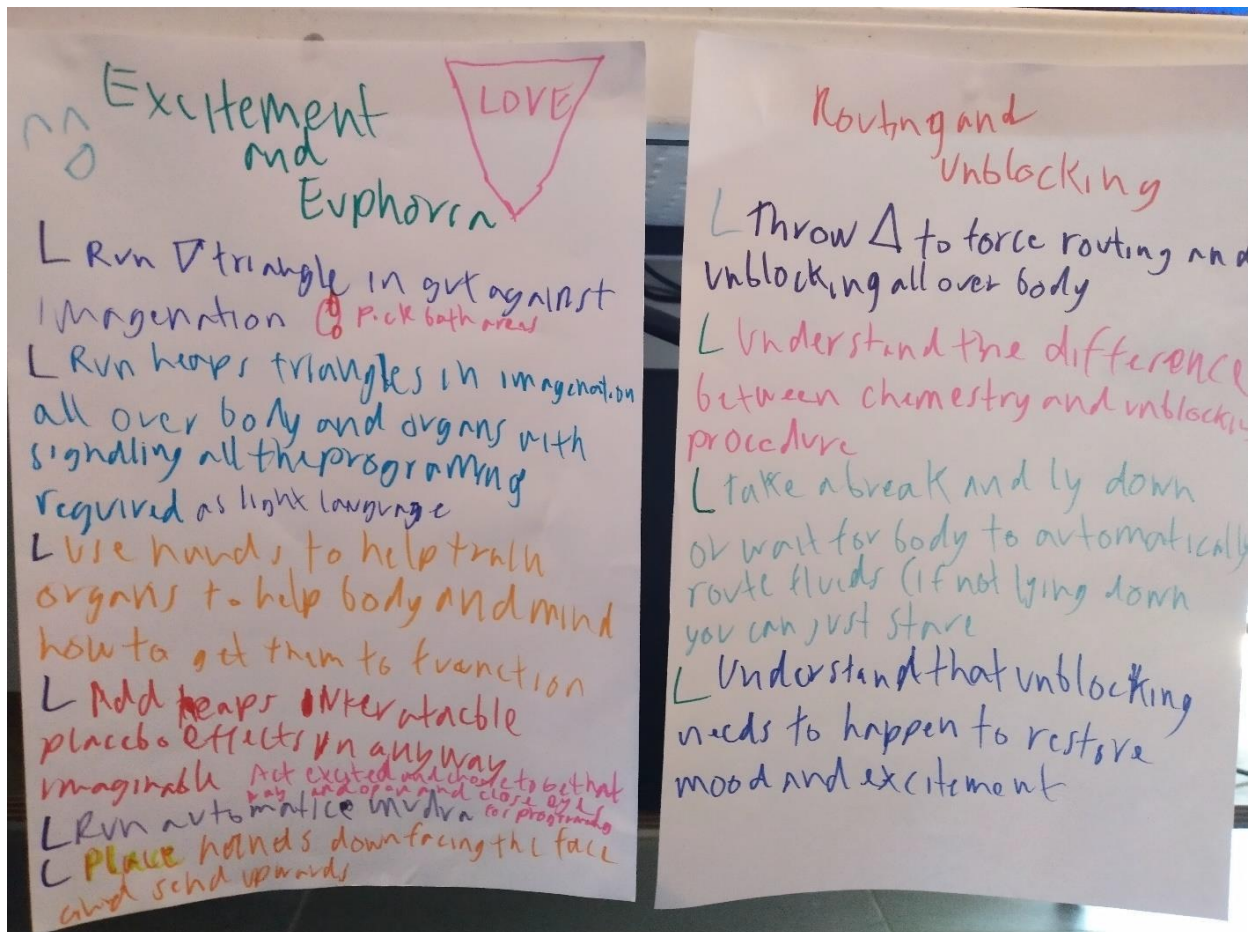 Excitement
and
Euphoria
LOVE
Run ▽ triangle in gut against
imagenation
Pick both areas
Run heaps triangles in imagenation
all over body and organs with
signalling all the programing
required as light language
Use hands to help train
organs to help body and mind
how to get them to function
Add heaps
placebo effects in any way
imaginable
Act excited and chose to be that
way and open and close eyes
for programing
Run automatice mudra
Place hands down facing the face
and send upwards
Routing and
unblocking
Throw △ to force routing and
unblocking all over body
Understand the difference
between chemestry and unblocking
procedure
take a break and ly down
or wait for body to automatically
route fluids (if not lying down
you can just stare
Understand that unblocking
needs to happen to restore
mood and excitement